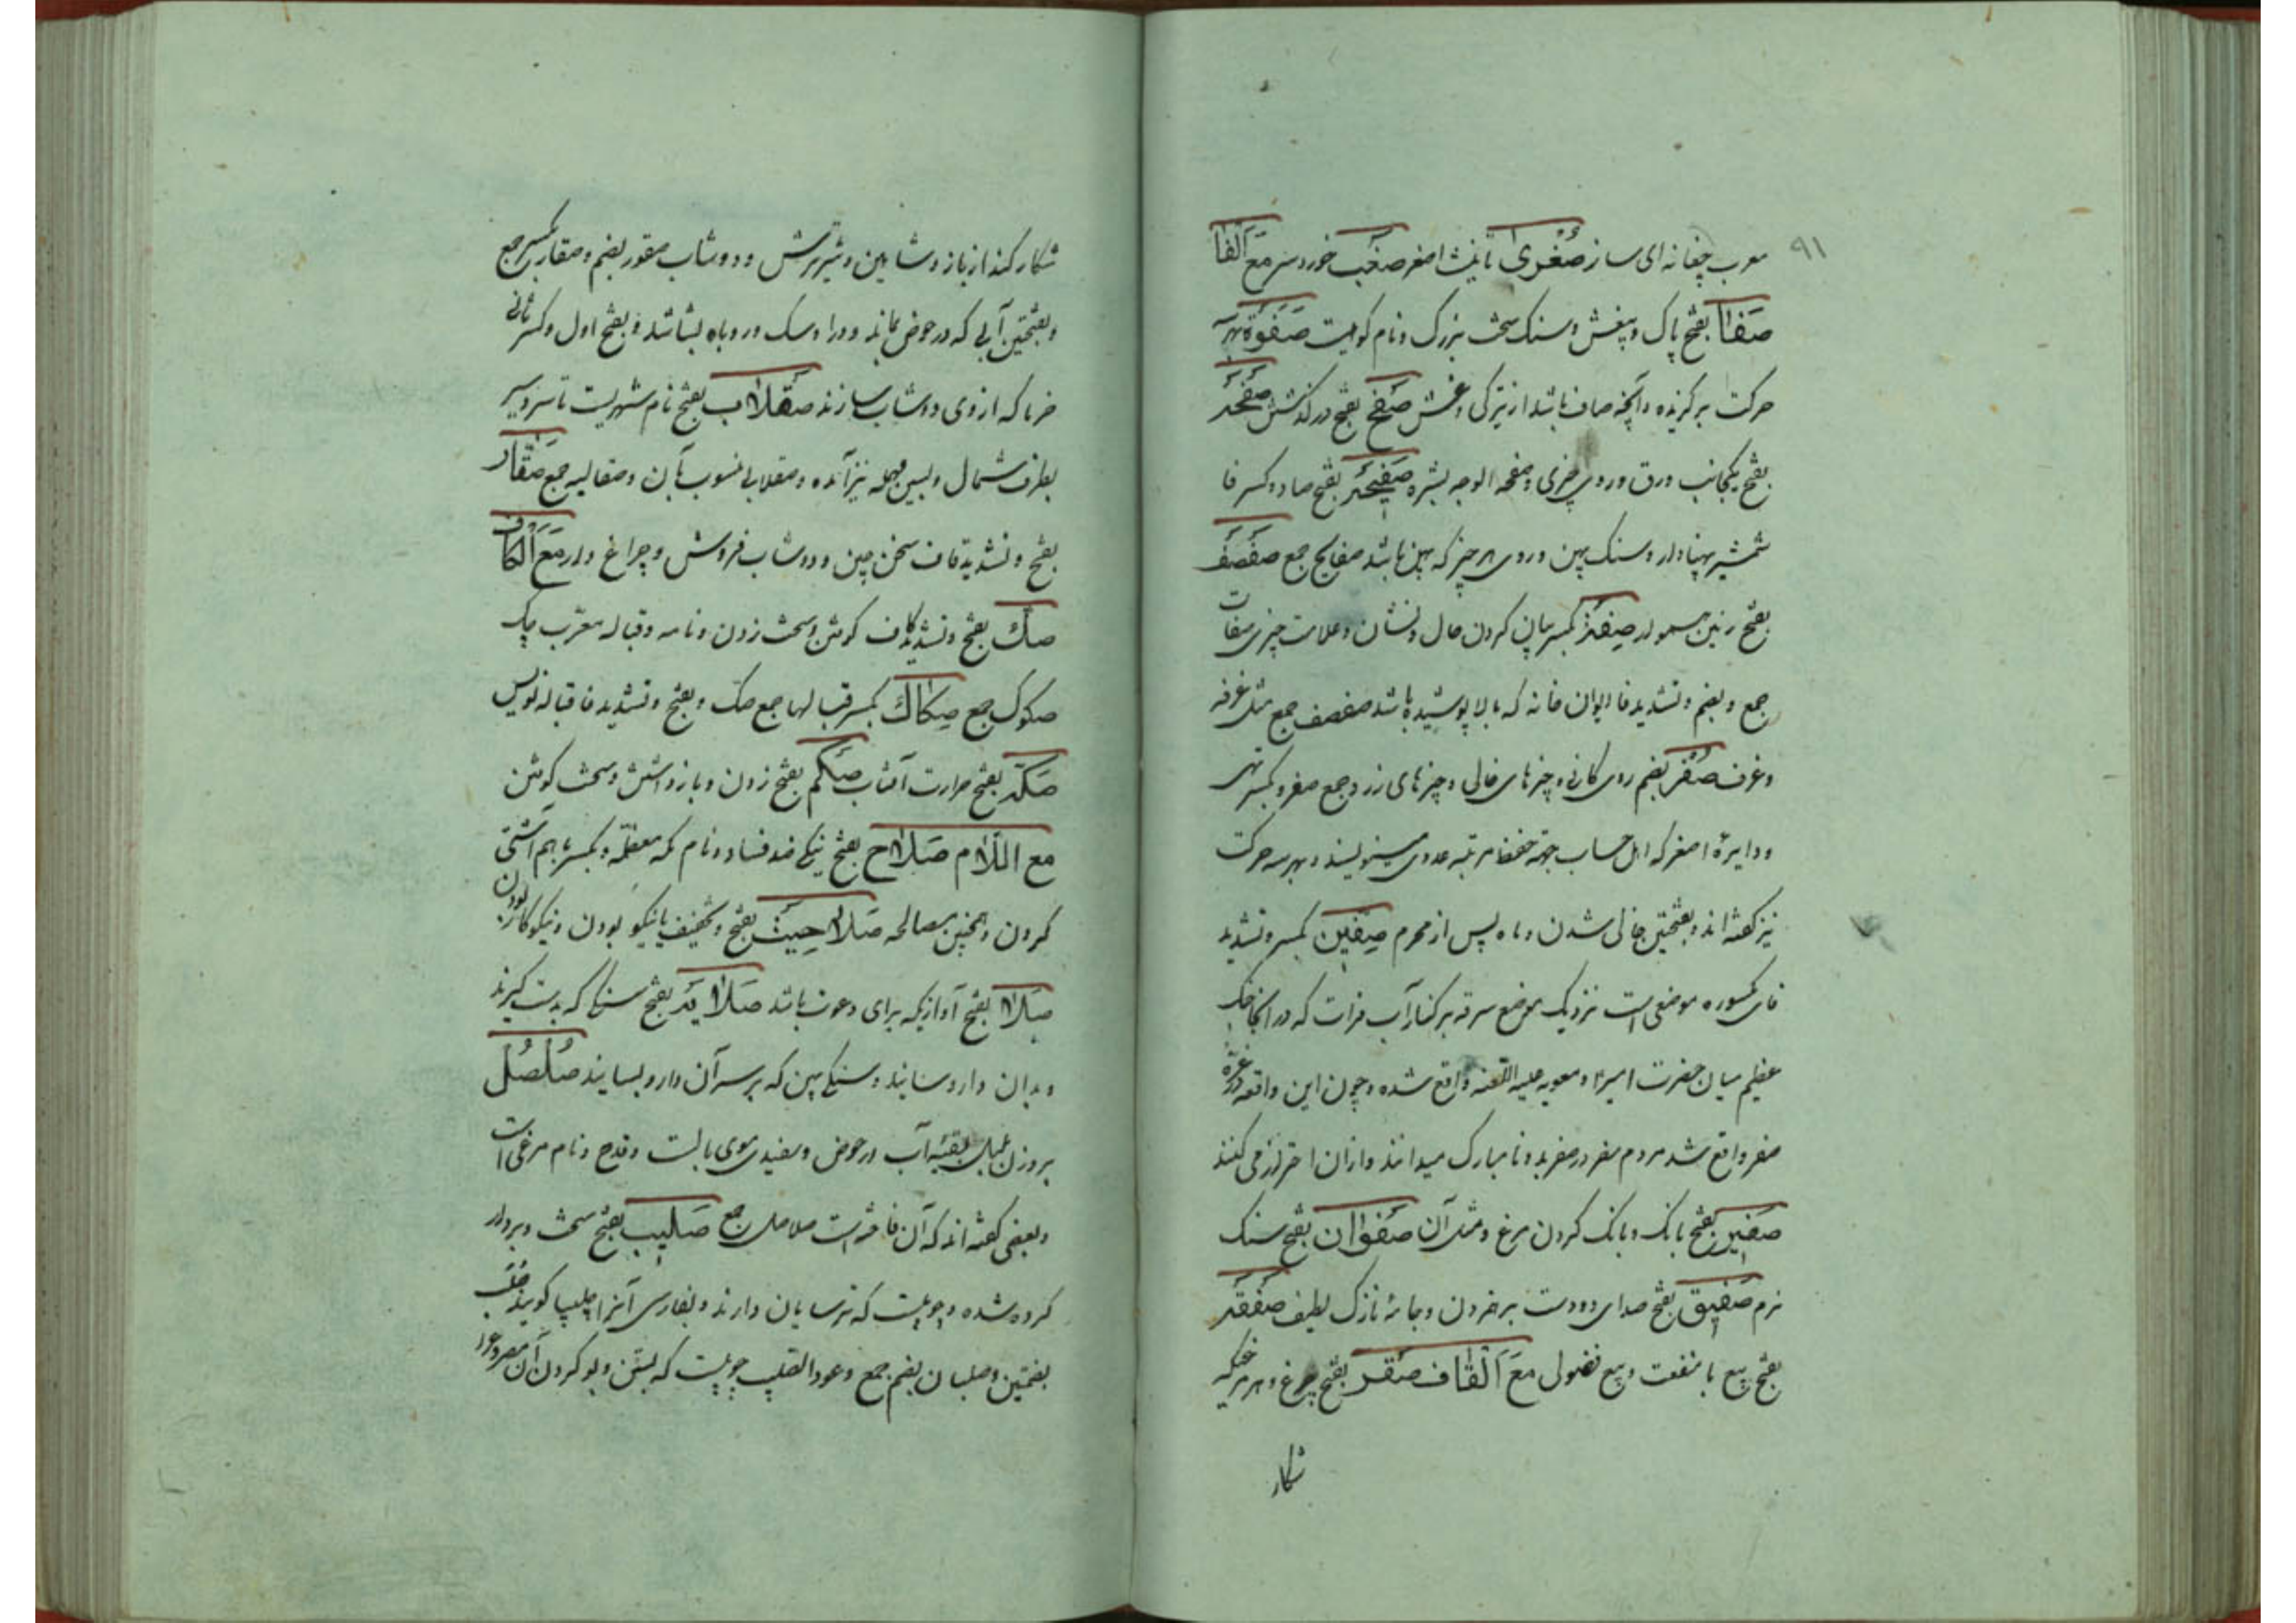 ۹۱
معرب چغانه ای ساز صُغْریٰ تانیث اصغر صغیب خورد سر مَعَ الْفا
صَفٰا بفتح پاک و بیغش و سنک سخت بزرک و نام کوهیست صَفْوَة بهر سه
حرکت برکزیده و آنچه صاف باشد از تیرکی و غش صَفْح بفتح در کذشتن صَفْحَه
بفتح یکجانب ورق و روی چیزی و صفحه الوجه بشره صَفیحَه بفتح صاد و کسر فا
شمشیر پهنادار و سنک پهن و روی هر چیز که پهن باشد صفایح جمع صَفْصَف
بفتح زمین هموار صِفَة بکسر بیان کردن حال و نشان و علامت چیزی صفات
جمع و بضم و تشدید فا ایوان خانه که بالا پوشیده باشد صفصف جمع مثل غرفه
و غرف صُفْر بضم روی کانی و چیزهای خالی و چیزهای زرد جمع صفر و بکسر تهی
و دایرهٔ اصغر که اهل حساب جهة حفظ مرتبه عددی مینویسند و بهر سه حرکت
نیز کفته اند و بفتحتین خالی شدن و ماه پس از محرم صِفّین بکسر و تشدید
فای مکسوره موضعی است نزدیک بموضع سرقه بر کنار آب فرات که در آنجا جنک
عظیم میان حضرت امیر و معویه علیه اللعنه واقع شده و چون این واقعه در غرّه
صفر واقع شد مردم سفر در صفر بد و نامبارک میدانند و ازان احتراز می کنند
صَفیر بفتح بانک و بانک کردن مرغ و مثل آن صَفْوٰان بفتح سنک
نرم صَفیق بفتح صدای دو دست بر هم زدن و جامهٔ نازک لطیف صَفْقَه
بفتح بیع با منفعت و بیع فضولی مَعَ الْقٰاف صَقْر بفتح چرغ و هر مرغیکه
شکار
شکار کند از باز و شاهین و شیر ترش و دوشاب صقور بضم و صقار بکسر جمع
و بفتحتین آبی که در حوض بماند و در او سک و روباه بشاشد و بفتح اول و کسر ثانی
خرما که از وی دوشاب سازند صَقْلاب بفتح نام شهریست تا سردسیر
بطرف شمال و بسین مهمله نیز آمده و صقلابی منسوب بآن و صقالیه جمع صَقّار
بفتح و تشدید قاف سخن چین و دوشاب فروش و چراغ دار مَعَ الْکٰاف
صَکّ بفتح و تشدید کاف کوفتن و سخت زدن و نامه و قباله معرّب چک
صکوک جمع صِکاک بکسر قبالها جمع صک و بفتح و تشدید فا قباله نویس
صَکّه بفتح حرارت آفتاب صَکْم بفتح زدن و بازداشتن و سخت کوفتن
مع اللّام صَلاح بفتح نیکی ضد فساد و نام مکه معظّمه و بکسر باهم آشتی
کردن و همچنین مصالحه صَلاحِیَت بفتح و تخفیف یا نیکو بودن و نیکوکار بودن
صَلا بفتح آوازیکه برای دعوت باشد صَلایَه بفتح سنکی که بدست کیرند
و بدان دارو سایند و سنکی پهن که بر سر آن دارو بسایند صُلْصُل
بر وزن بلبل بقیّه آب در حوض و سفیدی موی بالست و قدح و نام مرغی است
و بعضی کفته اند که آن فاخته است صلاصل جمع صَلیب بفتح سخت و بردار
کرده شده و چوبیست که ترسایان دارند و بفارسی آنرا چلیپا کویند صُلُب
بضمتین و صلبان بضم جمع و عود الصلیب چوبیست که بستن و بو کردن آن مصروع را